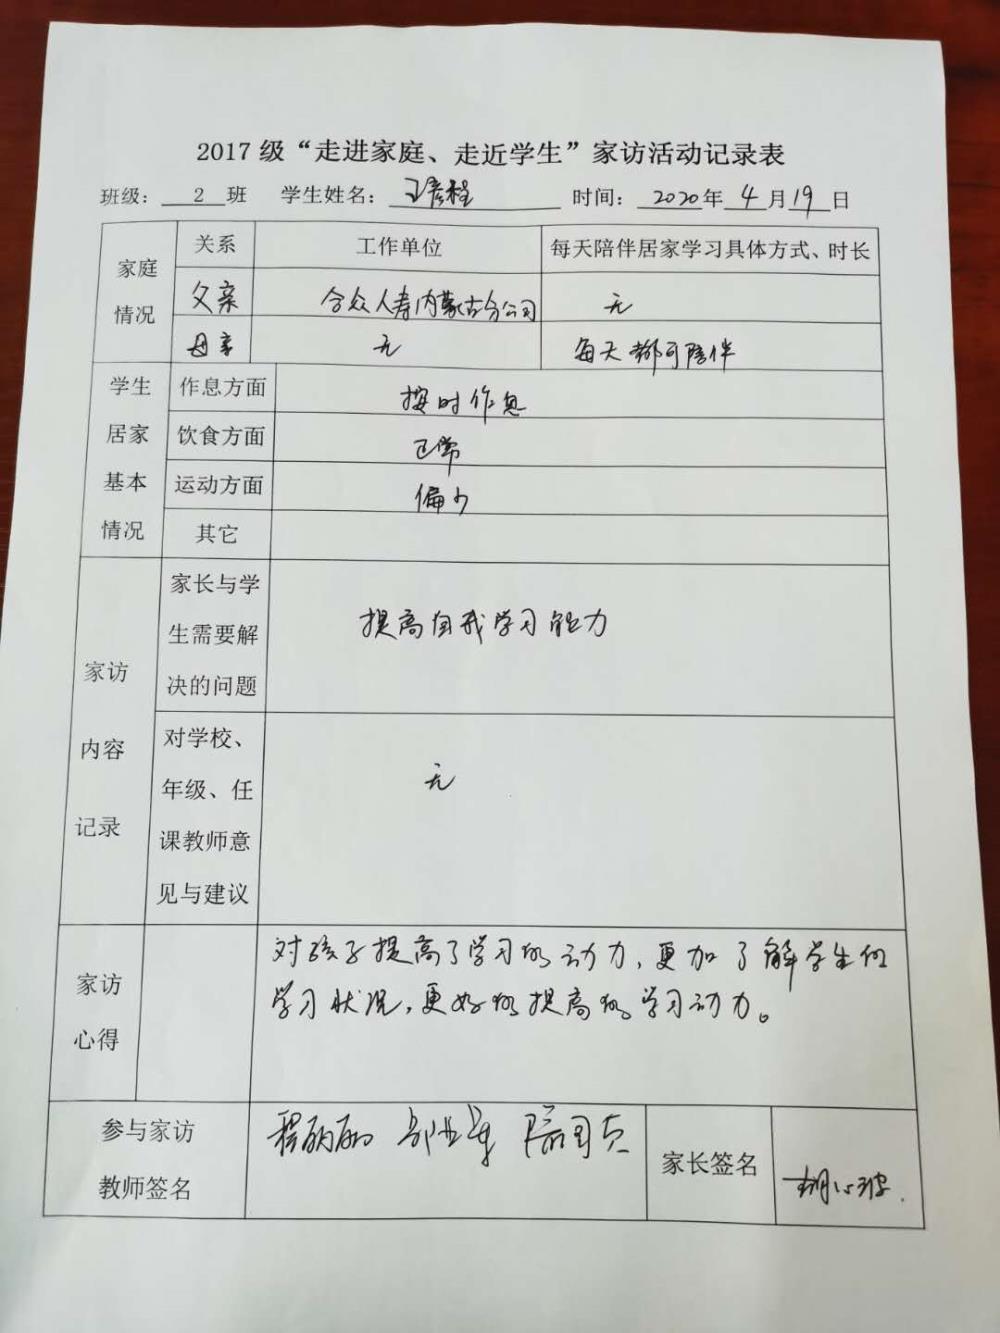 2017 级“走进家庭、走近学生”家访活动记录表
班级： 2 班 学生姓名： 王彦程 时间： 2020 年 4 月 19 日
家庭情况
关系 工作单位 每天陪伴居家学习具体方式、时长
父亲 合众人寿内蒙古分公司 无
母亲 无 每天都可陪伴
学生居家基本情况
作息方面 按时作息
饮食方面 正常
运动方面 偏少
其它
家访内容记录
家长与学
生需要解
决的问题
提高自我学习能力
对学校、
年级、任
课教师意
见与建议
无
家访
心得
对孩子提高了学习的动力，更加了解学生的
学习状况，更好的提高的学习动力。
参与家访
教师签名
程丽丽
家长签名